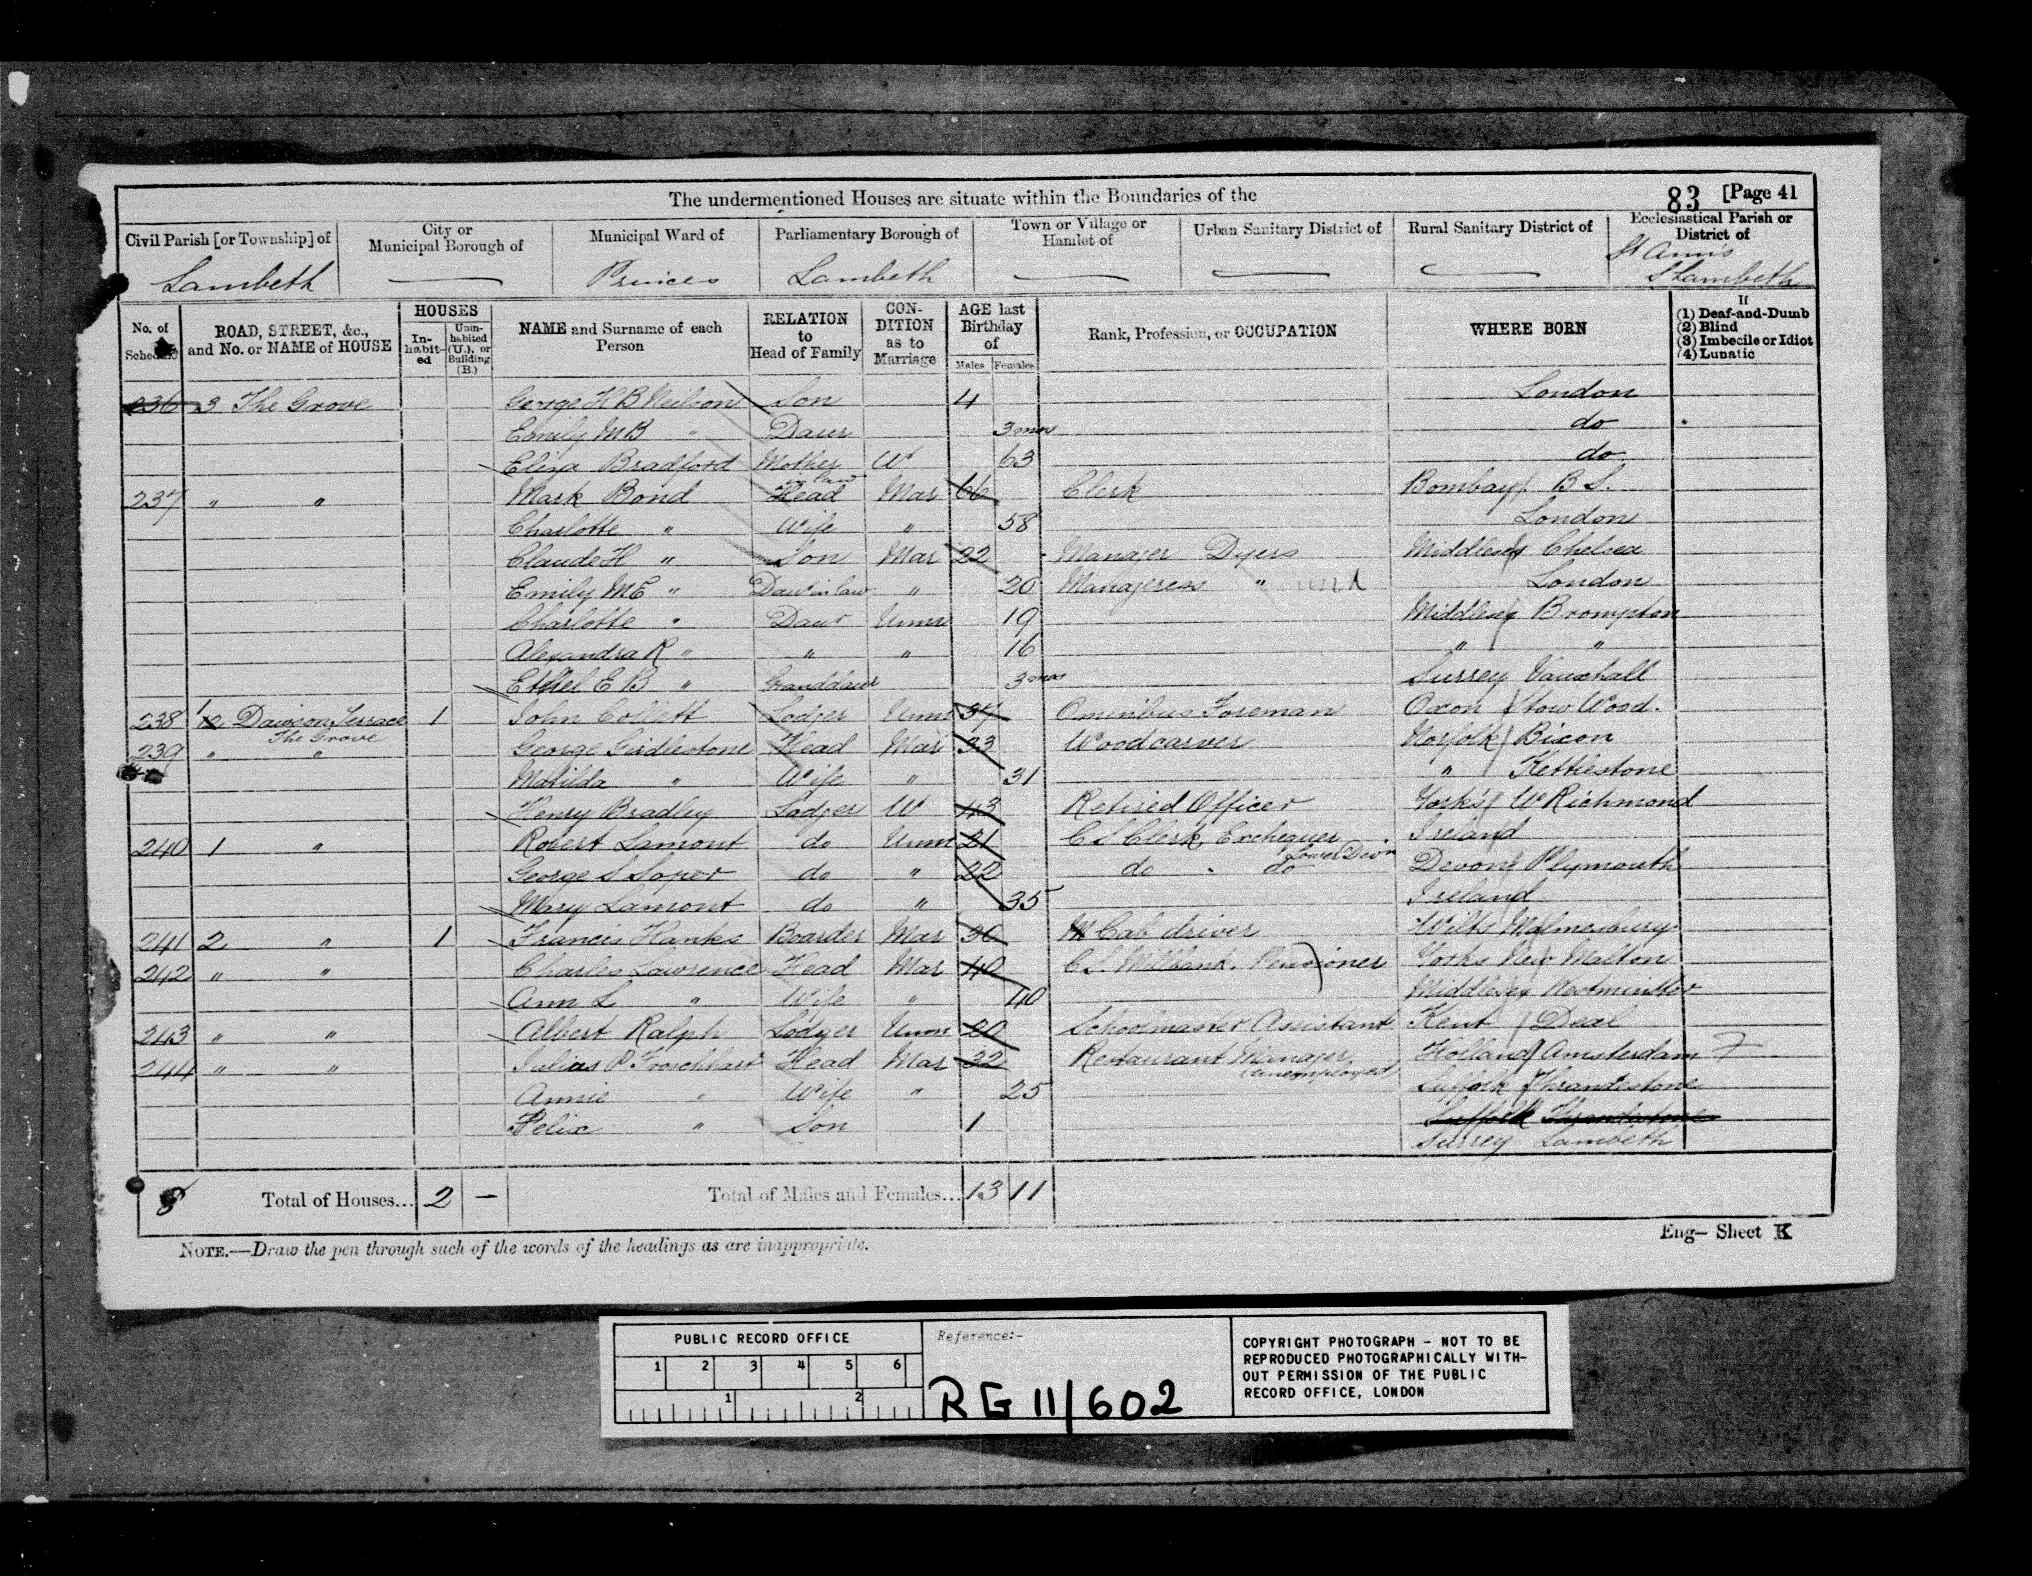 The undermentioned Houses are situate within the Boundaries of the
83 [Page 41
Civil Parish [or Township] of
City or Municipal Borough of
Municipal Ward of
Parliamentary Borough of
Town or Village or Hamlet of
Urban Sanitary District of
Rural Sanitary District of
Ecclesiastical Parish or District of
Lambeth — Princes Lambeth — — — St Anns S Lambeth
No. of Schedule
ROAD, STREET, &c., and No. or NAME of HOUSE
HOUSES
In-habit-ed
Unin-habited (U.), or Building (B.)
NAME and Surname of each Person
RELATION to Head of Family
CON-DITION as to Marriage
AGE last Birthday of
Males Females
Rank, Profession, or OCCUPATION
WHERE BORN
If
(1) Deaf-and-Dumb
(2) Blind
(3) Imbecile or Idiot
(4) Lunatic
236 3 The Grove George H B Neilson Son 4 London
Emily M B " Daur 3 mos do
Eliza Bradford Mother in law W 63 do
237 " " Mark Bond Head Mar 66 Clerk Bombay B S.
Charlotte " Wife " 58 London
Claude H " Son Mar 22 Manager Dyers Middlesex Chelsea
Emily M E " Daur in law " 20 Manageress " London
Charlotte " Daur Unm 19 Middlesex Brompton
Alexandra R " " " 16 " "
Ethel E B " Granddaur 3 mos Surrey Vauxhall
238 Dawson Terrace 1 John Collett Lodger Unm 37 Ominibus Foreman Oxon Stow Wood.
The Grove
239 " " George Girdlestone Head Mar 33 Woodcarver Norfolk
Matilda " Wife " 31 " Kettlestone
Henry Bradley Lodger W 43 Retired Officer Yorks Richmond
240 1 " Robert Lamont do Unm 21 C S Clerk Exchequer Ireland
Lower Divn
George S Soper do " 22 do " do Devon Plymouth
Mary Lamont do " 35 Ireland
241 2 " 1 Francis Hanks Boarder Mar 36 Cab driver Wilts Malmesbury
242 " " Charles Lawrence Head Mar 40 C S Millbank. Pensioner Yorks New Malton
Ann L " Wife " 40 Middlesex Westminster
243 " " Albert Ralph Lodger Unm 20 Schoolmaster Assistant Kent Deal
244 " " Julius P Head Mar 32 Restaurant Manager Holland Amsterdam F
(unemployed)
Annie " Wife " 25 Suffolk Thrandestone
Felix " Son 1 Suffolk Thrandestone
Surrey Lambeth
8 Total of Houses... 2 — Total of Males and Females... 13 11
NOTE.—Draw the pen through such of the words of the headings as are inappropriate.
Eng— Sheet K
PUBLIC RECORD OFFICE
1 2 3 4 5 6
1 2
Reference:-
RG 11/602
COPYRIGHT PHOTOGRAPH - NOT TO BE
REPRODUCED PHOTOGRAPHICALLY WITH-
OUT PERMISSION OF THE PUBLIC
RECORD OFFICE, LONDON